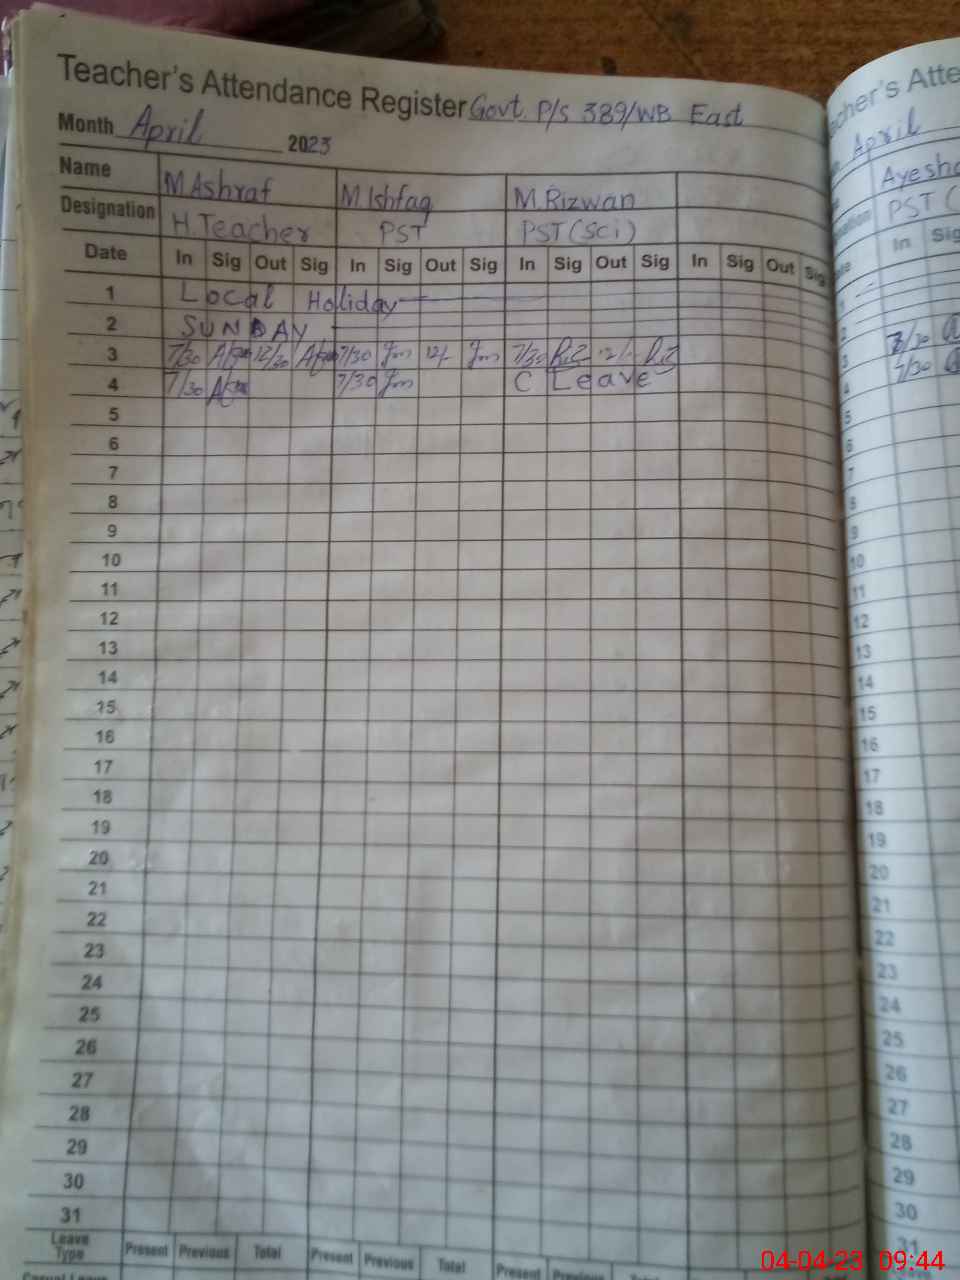 Teacher's Attendance Register Govt. P/S 389/WB East
Month April 2023
Name M.Ashraf M.Ishfaq M.Rizwan
Designation H.Teacher PST PST(Sci)
Date In Sig Out Sig In Sig Out Sig In Sig Out Sig In Sig Out Sig
1 Local Holiday
2 SUNDAY
3 7/30 12/30 7/30 12/- 7/30 Riz 12/- Riz
4 7/30 7/30 C Leave
5
6
7
8
9
10
11
12
13
14
15
16
17
18
19
20
21
22
23
24
25
26
27
28
29
30
31
Leave Type Present Previous Total Present Previous Total Present Previous Total
Casual Leave
April
PST (
In Sig
2
3 7/30
4 7/30
5
6
7
8
9
10
11
12
13
14
15
16
17
18
19
20
21
22
23
24
25
26
27
28
29
30
31
04-04-23 09:44